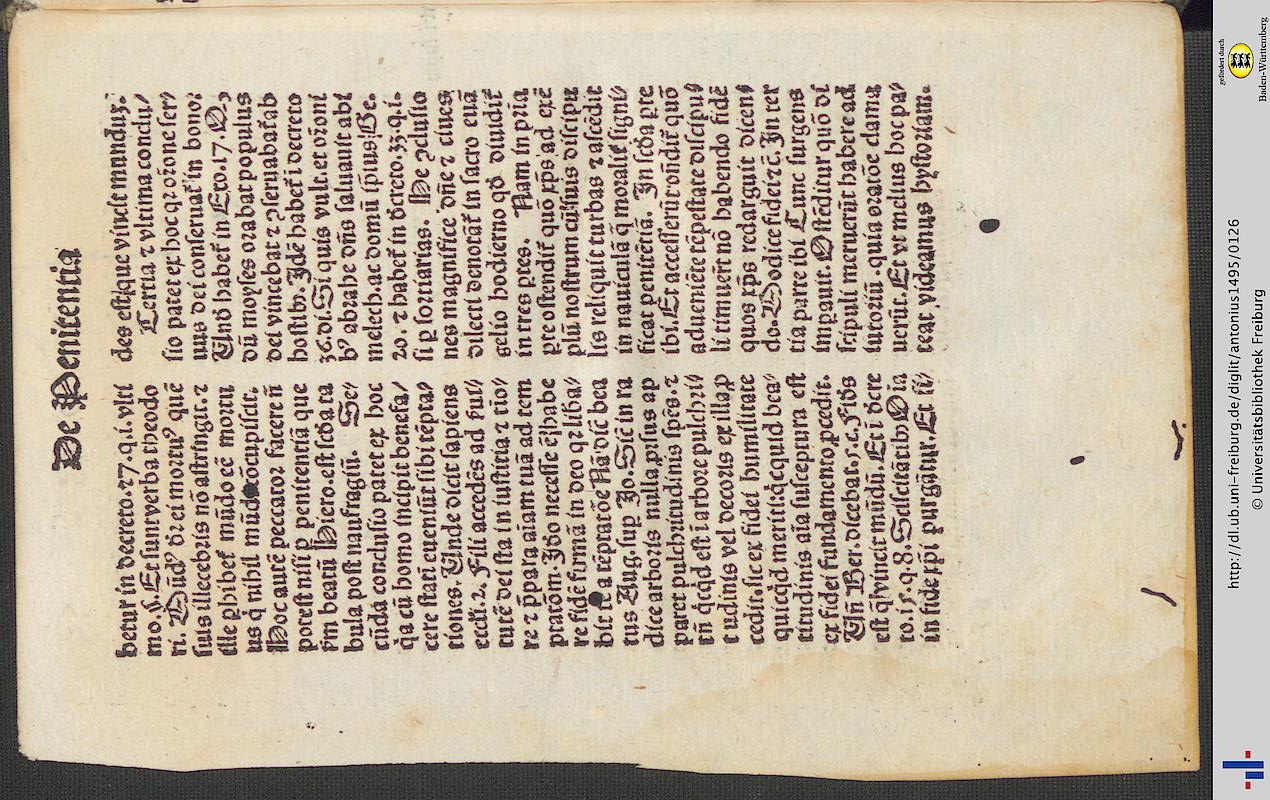 De Penitentia
betur in decreto. 27. q. i. vlti
mo. §. Et sunt verba theodo
ri. Mūdꝰ b̄ rei mortuꝰ quē
suis illecebris nō astringit. ⁊
ille ꝓhibet᷑ mūdo eē mortu
us q̄ nihil mūdi ōcupiscit.
Hoc autē peccator facere nō
potest nisi ꝑ penitentiā que
ẜm beatū Hiero. est scd́a ta
bula post naufragiū. Se⸗
cūda conclusio patet ex hoc
q̄a cū homo incipit benefa⸗
cere stati eueniūt sibi tēpta⸗
tiones. Unde dicit sapiens
eccl̓i. 2. Fili accedēs ad ẜui⸗
tutē dei sta in iusticia ⁊ tio⸗
re ⁊ p̄para aīam tuā ad tem
ptatōm. Iō necesse ē ꝙ habe
re fidē firmā in deo qꝛ liba⸗
bit te a tēptatōe Nā dic̄ bea
tus Aug. sup Jo. Sic̄ in ra
dice arboris nulla ꝓsus ap
paret pulchritudinis spēs. ⁊
tn̄ q̇cq̇d est ī arbore pulchri⸗
tudinis vel decoris ex illa ꝓ
cedit. sic ex fidei humilitate
quicq̇d meriti: q̇cquid bea⸗
titudinis aīa susceptura est
ex fidei fundamento ꝓcedit.
Un̄ Ber. dicebat. s. c. Fidꝭs
est q̄ vincit mūdū. Et ī decre
to. 15. q. 8. Sciscitātibꝰ Oīa
in fide xp̄i purgātur. Et si⸗
des est que vincit munduꝫ.
Tertia ⁊ vltima conclu⸗
sio patet ex hoc qꝛ orōne ser⸗
uus dei conseruat᷑ in bono:
Un̄ habet᷑ in Exo. 17. Q̄
dū moyses orabat populus
dei vincebat ⁊ ꝯseruabat᷑ ab
hostibꝰ. Idē habet᷑ ī decreto
36. di. Si quis vult. et orōni
bꝰ abrahe dn̄s saluauit abi
melech ac domū ip̄ius Ge.
20. ⁊ habet᷑ in decreto. 33. q. i.
si ꝑ sortiarias. He ꝯclusio
nes magnifice dn̄e ⁊ ciues
dilecti denotāt᷑ in sacro euā
gelio hodierno qd̓ diuidit᷑
in tres ptes. Nam in pria
pte ostendit᷑ quō xp̄s ad exē
plū nostrum cū suis discipu
lis reliquit turbas ⁊ ascēdit
in nauiculā q̄ moralit᷑ signi⸗
ficat penitētiā. In scd́a pte
ibi. Et accesserūt ōndit᷑ quō
adueniēte tēpestate discipu⸗
li timuer̄t nō habendo fidē
quos xp̄s redarguit dicen⸗
do. Modice fidei ⁊c̄. In ter
tia parte ibi Tunc surgens
imperauit. Ostēditur quō di
scipuli meruerūt habere ad
iutoriū. quia oratōe clama
uerūt. Et vt melius hoc pa⸗
teat videamus hystoriam.
gefördert durch
Baden-Württemberg
http://dl.ub.uni-freiburg.de/diglit/antonius1495/0126
© Universitätsbibliothek Freiburg